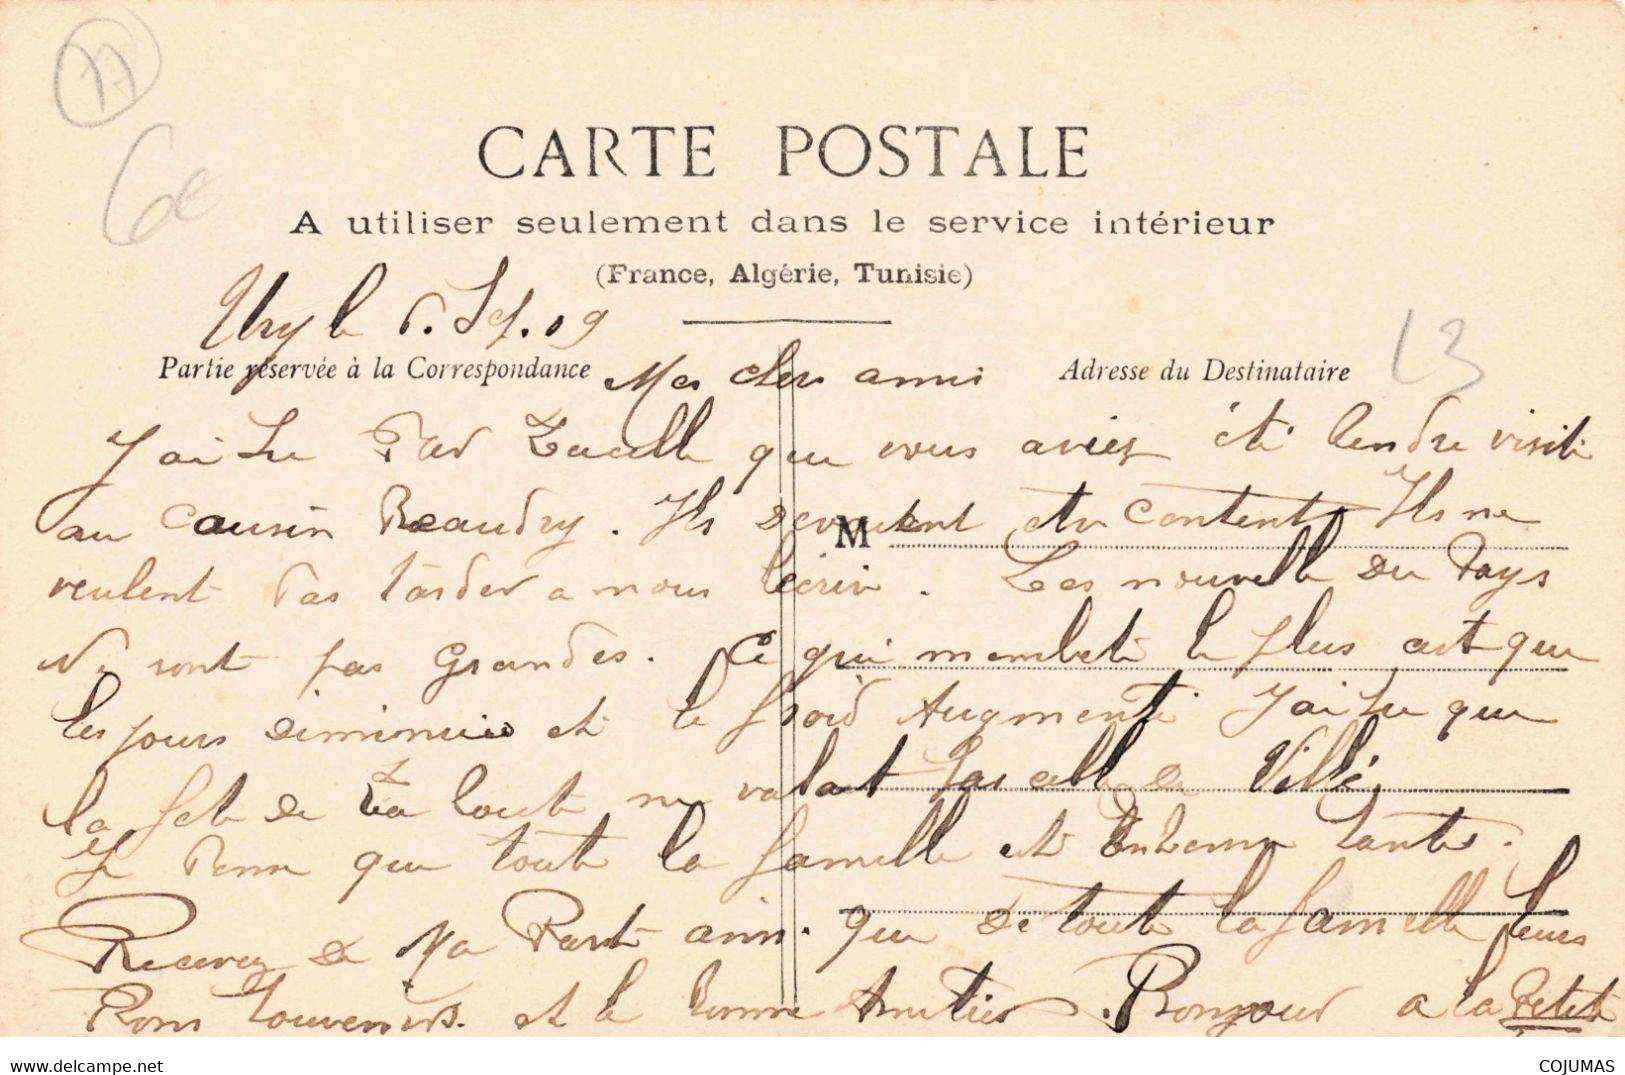 77
6€
CARTE POSTALE
A utiliser seulement dans le service intérieur
(France, Algérie, Tunisie)
Ury le 6. Sep. 09
L3
Partie réservée à la Correspondance
Adresse du Destinataire
Mes chers amis
J'ai su Par que vous aviez été Rendre visite
au Cousin Beaudry. Ils devaient etre Contents Ils ne
M
veulent Pas tarder a nous Ecrire. Les nouvelle du Pays
Ne sont pas Grandes. Ce qui m'embete le plus cest que
les jours diminuie et le froid Augmente J'ai su que
la fete de La ne valait pas celle de Villé
Je Pense que toute la famille et Tante.
Recevez de Ma Part ainsi que de toute la famille leurs
Bons Souvenirs et le bonne Amitier. Bonjour a la Petite
COJUMAS